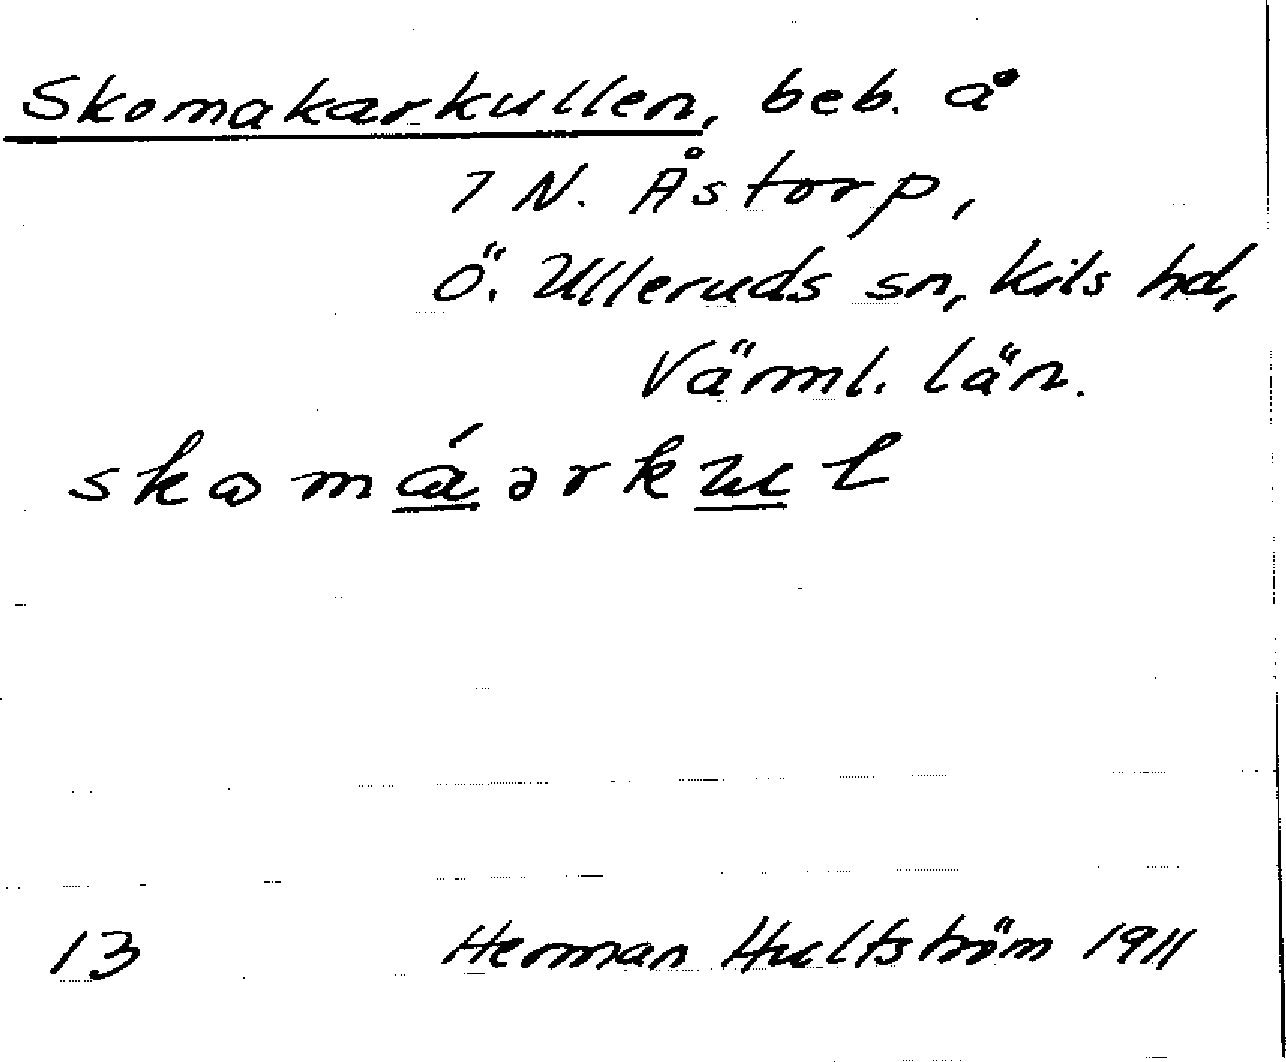 Skomakarkullen, beb. å
7 N. Åstorp,
Ö. Ulleruds sn, Kils hd,
Värml. län.
13 Herman Hultström 1911